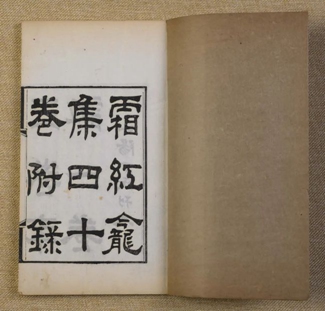 霜紅龕
集四十
卷附錄